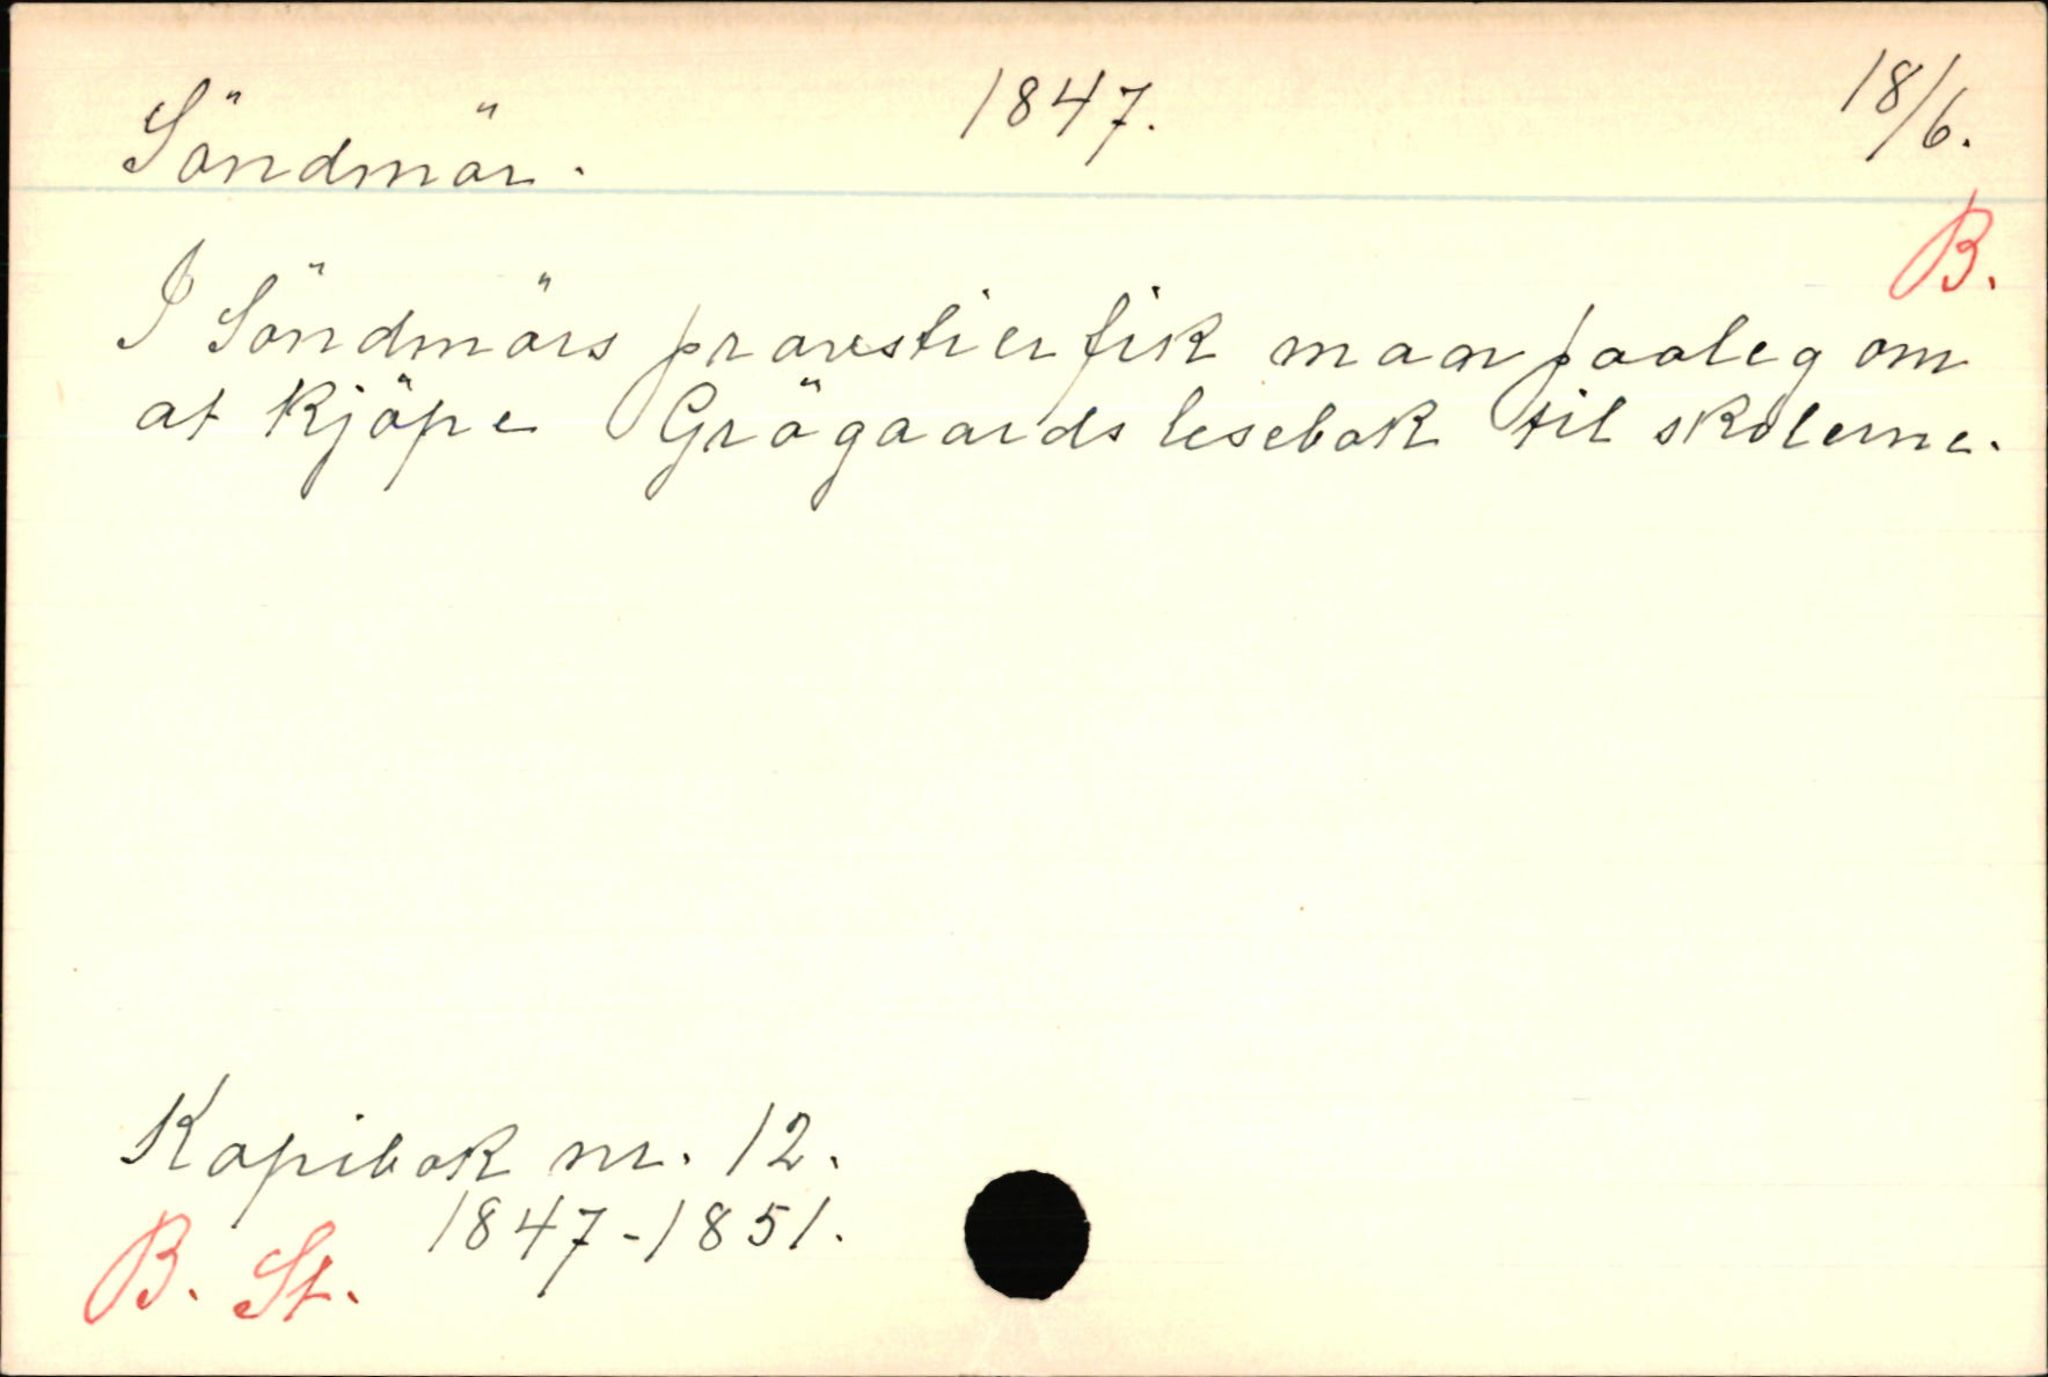 Söndmör. 1847. 18/6.
B.
I Söndmörs provstier fik man paaleg om
at kjöpe Grögaards lesebok til skolerne.
Kopibok nr. 12.
1847-1851.
B. St.